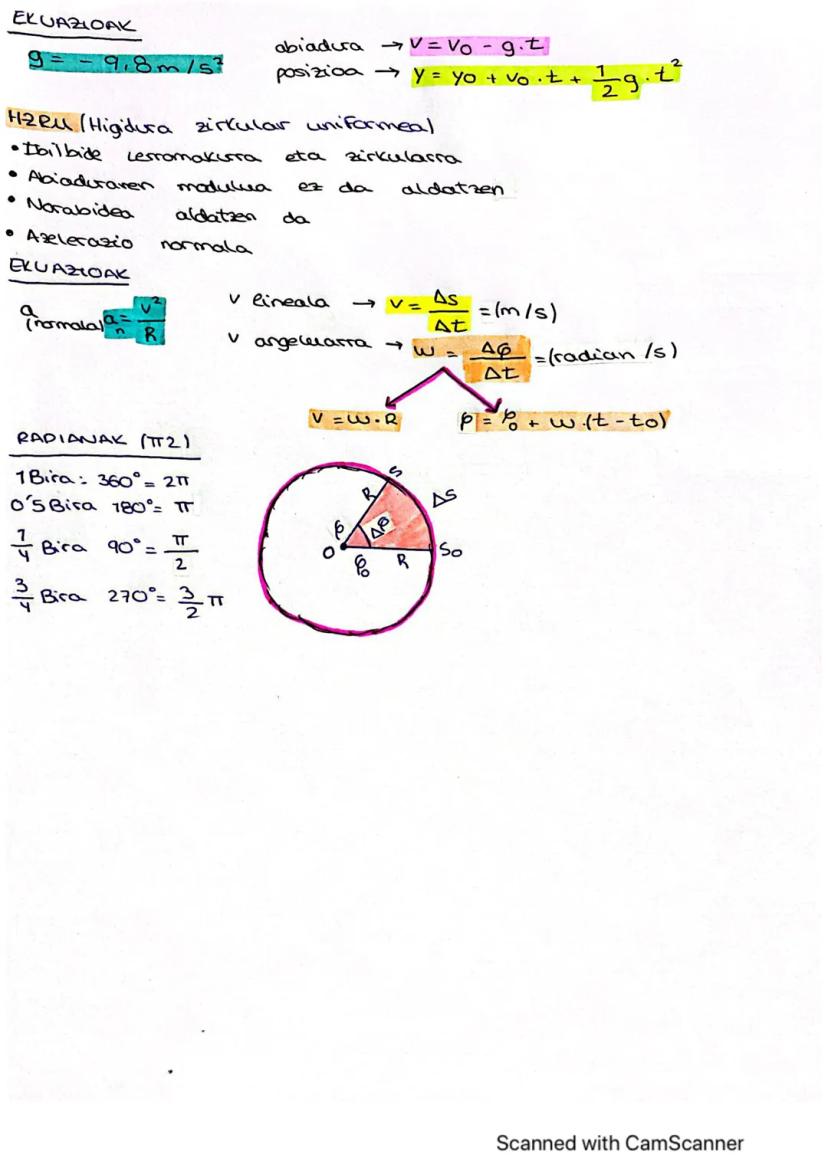 EKUAZIOAK
g = - 9,8 m/s²
abiadura → v = v₀ - g·t
posizioa → y = y₀ + v₀·t + 1/2 g·t²
HZRU (Higidura zirkular uniformea)
• Ibilbide lerromakurra eta zirkularra
• Abiaduraren modulua ez da aldatzen
• Norabidea aldatzen da
• Azelerazio normala
EKUAZIOAK
a (normala) aₙ = v²/R
v lineala → v = Δs/Δt = (m/s)
v angeluarra → w = Δφ/Δt = (radian/s)
v = w·R
φ = φ₀ + w·(t - t₀)
RADIANAK (π2)
1 Bira: 360° = 2π
0'5 Bira 180° = π
1/4 Bira 90° = π/2
3/4 Bira 270° = 3/2 π
S
R
ΔS
φ
Δφ
O
S₀
φ₀
R
Scanned with CamScanner